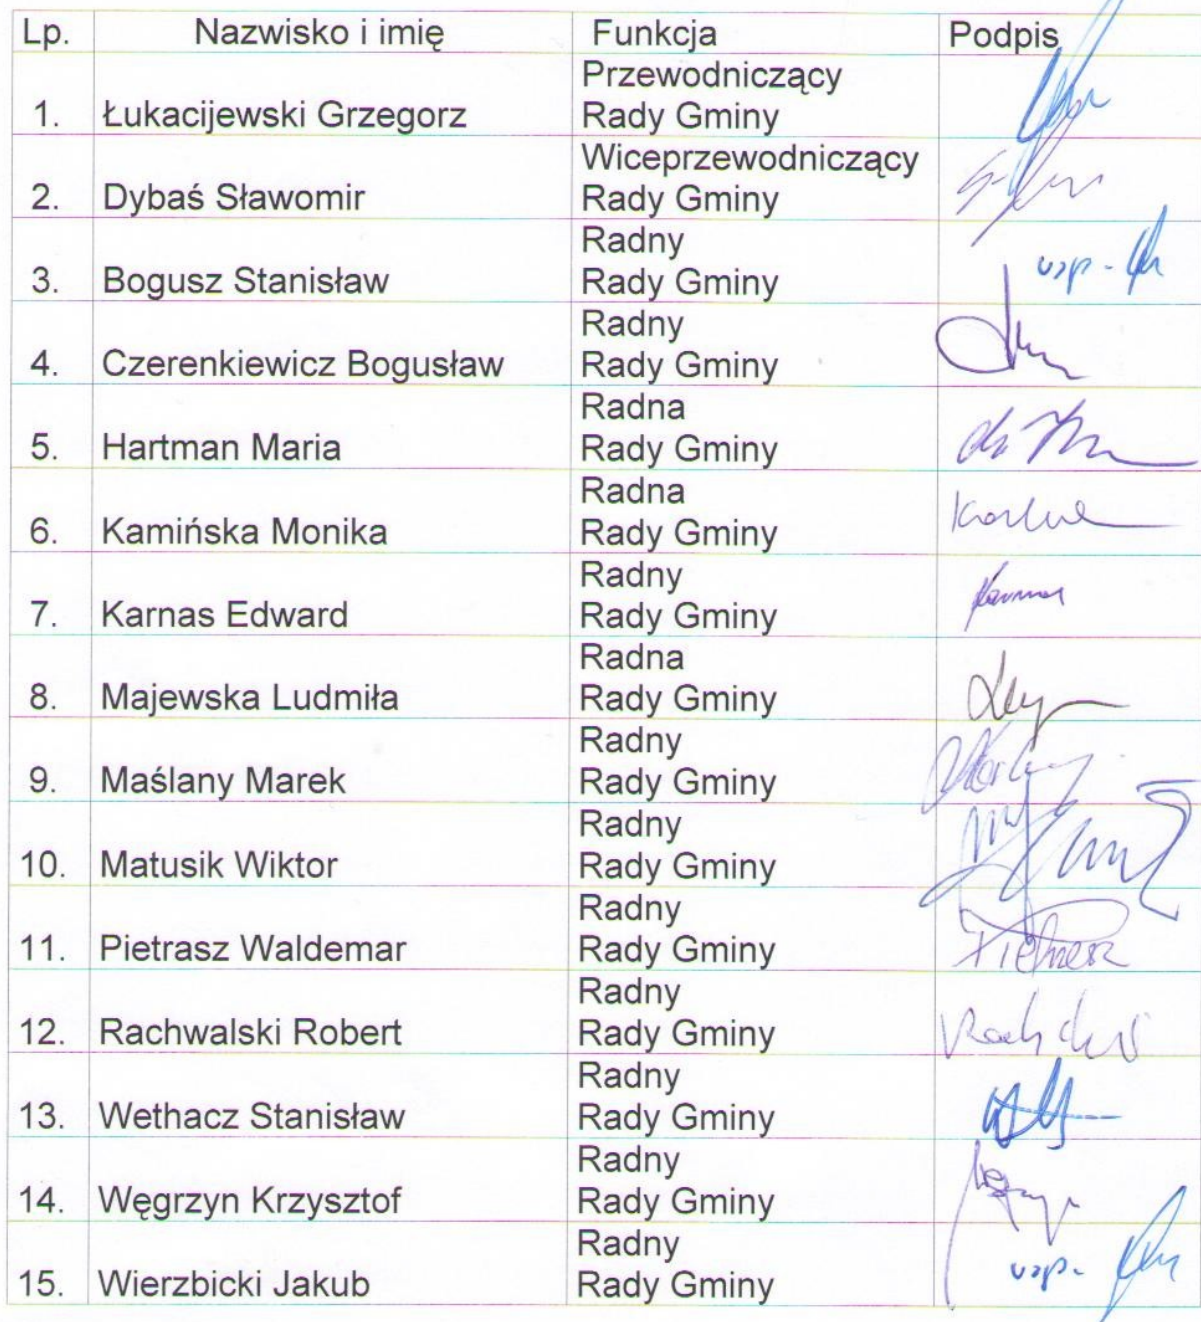 Lp. Nazwisko i imię Funkcja Podpis
1. Łukacijewski Grzegorz Przewodniczący
Rady Gminy
2. Dybaś Sławomir Wiceprzewodniczący
Rady Gminy
3. Bogusz Stanisław Radny
Rady Gminy usp.
4. Czerenkiewicz Bogusław Radny
Rady Gminy
5. Hartman Maria Radna
Rady Gminy
6. Kamińska Monika Radna
Rady Gminy
7. Karnas Edward Radny
Rady Gminy
8. Majewska Ludmiła Radna
Rady Gminy
9. Maślany Marek Radny
Rady Gminy
10. Matusik Wiktor Radny
Rady Gminy
11. Pietrasz Waldemar Radny
Rady Gminy Pietrasz
12. Rachwalski Robert Radny
Rady Gminy
13. Wethacz Stanisław Radny
Rady Gminy
14. Węgrzyn Krzysztof Radny
Rady Gminy
15. Wierzbicki Jakub Radny
Rady Gminy usp.